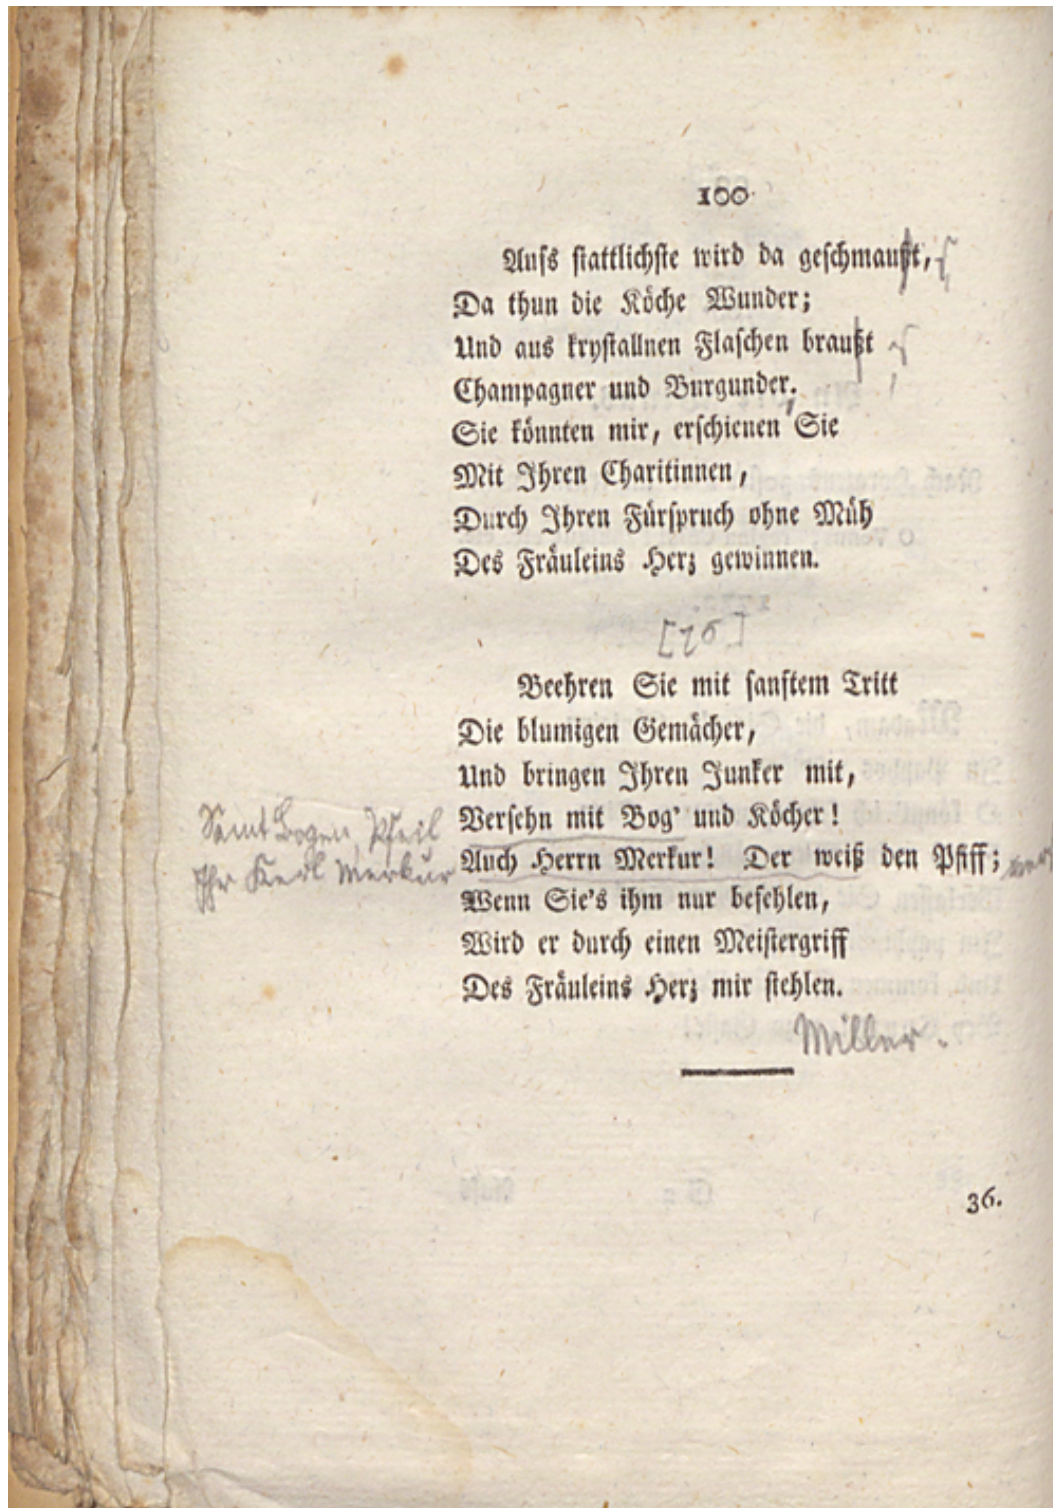 100
Aufs stattlichste wird da geschmaußt,
Da thun die Köche Wunder;
Und aus krystallnen Flaschen braußt
Champagner und Burgunder.
Sie könnten mir, erschienen Sie
Mit Ihren Charitinnen,
Durch Ihren Fürspruch ohne Müh
Des Fräuleins Herz gewinnen.
[76]
Beehren Sie mit sanftem Tritt
Die blumigen Gemächer,
Und bringen Ihren Junker mit,
Versehn mit Bog' und Köcher!
Samt Bogen, Pfeil
Auch Herrn Merkur! Der weiß den Pfiff;
Ihr Kerl Merkur
Wenn Sie's ihm nur befehlen,
Wird er durch einen Meistergriff
Des Fräuleins Herz mir stehlen.
Miller.
36.